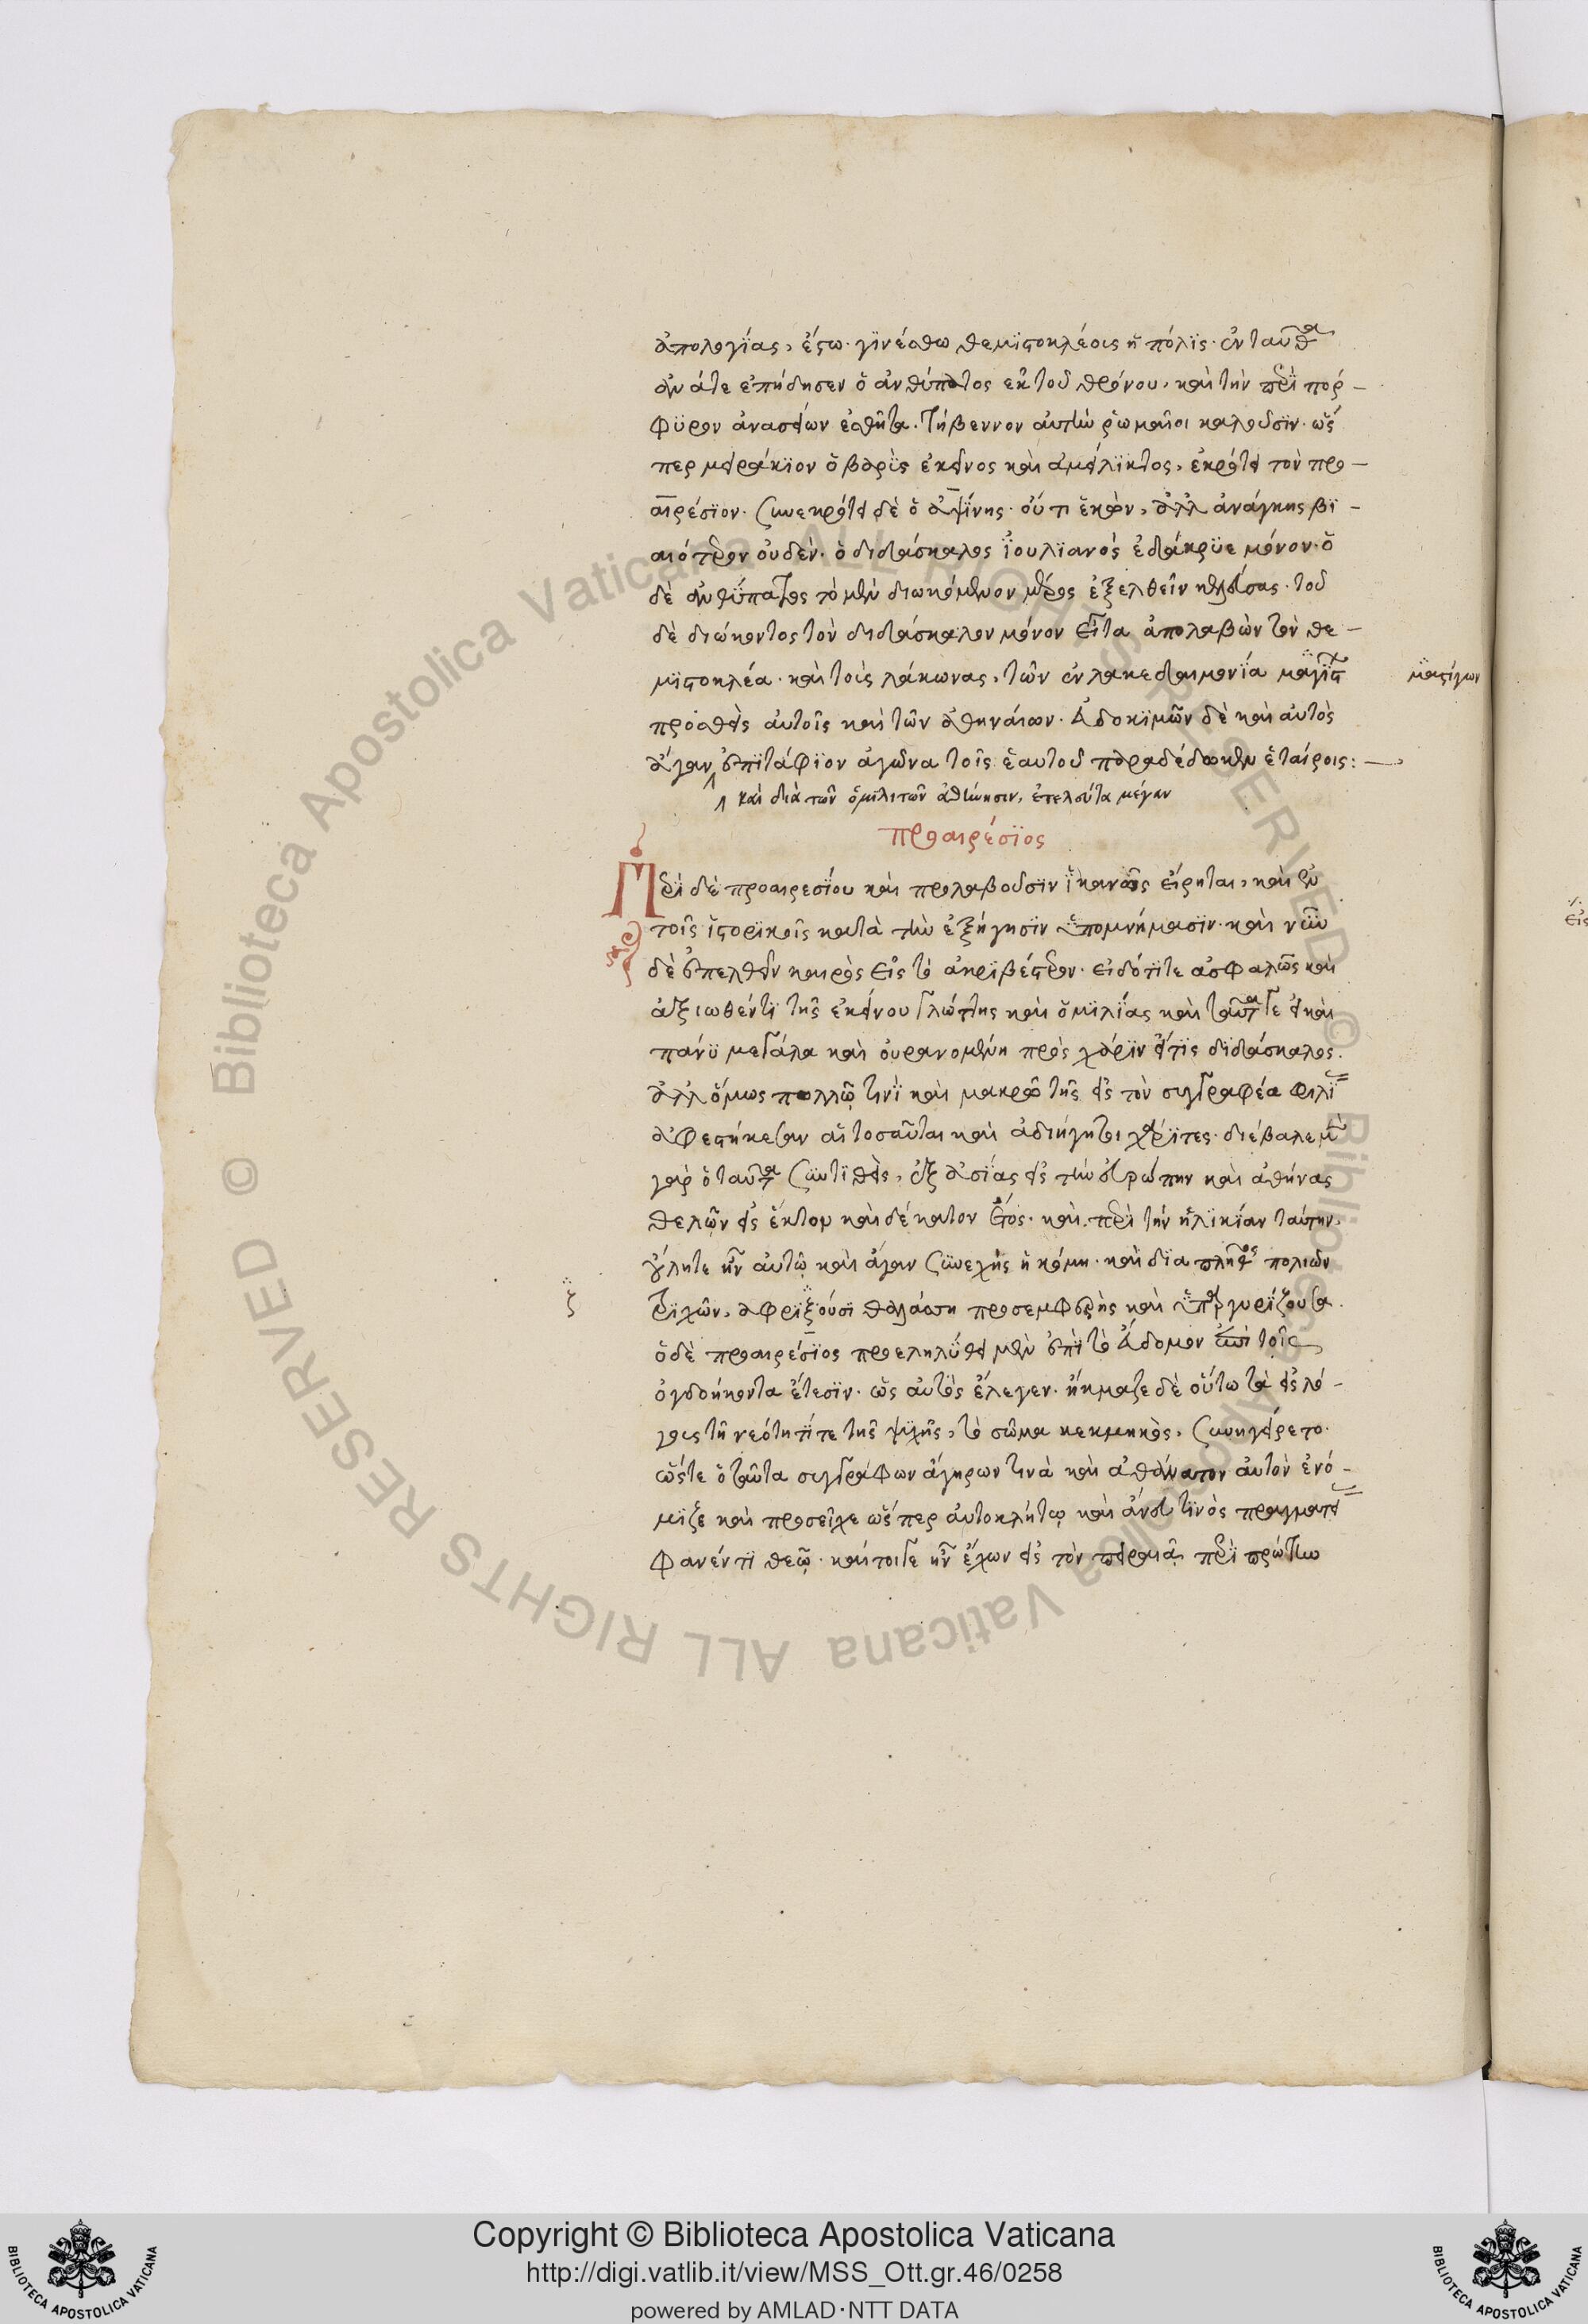 ἀπολογίας, ἔστω. γινέσθω θεμιστοκλέους ἡ πόλις. ἐνταῦθα
ἀνά τε ἐπήδησεν ὁ ἀνθύπατος ἐκ τοῦ θρόνου, καὶ τὴν περι πόρ-
φυρον ἀνασείων ἐσθῆτα. τήβεννον αὐτὴν ῥωμαῖοι καλοῦσιν. ὥς
περ μειράκιον ὁ βαρὺς ἐκεῖνος καὶ ἀμείλικτος, ἐκρότει τὸν προ-
αιρέσιον. συνεκρότει δὲ ὁ ἀψίνης. οὔτι ἑκὼν, ἀλλ ἀνάγκης βι-
αιότερον οὐδὲν. ὁ διδάσκαλος ἰουλιανὸς ἐδάκρυε μόνον. ὁ
δὲ ἀνθύπατος τὸ μὲν διωκόμενον μέρος ἐξελθεῖν κελεύσας. τοῦ
δὲ διώκοντος τὸν διδάσκαλον μόνον εἶτα ἀπολαβὼν τὸν θε-
μιστοκλέα. καὶ τοὺς λάκωνας, τῶν ἐν λακεδαιμονία μαγίστ
μαστίγων
πρόσθεὶς αὐτοῖς καὶ τῶν ἀθηναίων. εὐδοκιμῶν δὲ καὶ αὐτὸς
ἄγαν ἐπιτάφιον ἀγῶνα τοῖς ἑαυτοῦ παραδέδωκεν ἑταίροις:
καὶ διὰ τῶν ὁμιλητῶν ἀθήνησιν, ἐτελεύτα μέγαν
προαιρέσιος
Περὶ δὲ προαιρεσίου καὶ προλαβοῦσιν ἱκανῶς εἴρηται, καὶ ἐν
τοῖς ἱστορικοῖς κατὰ τὴν ἐξήγησιν ὑπομνήμασιν. καὶ νῦν
δὲ ἐπελθεῖν καιρὸς εἰς τὸ ἀκριβέστερον. εἰδότι τε ἀσφαλῶς καὶ
ἀξιωθέντι τῆς ἐκείνου γλώττης καὶ ὁμιλίας καὶ ταῦτά γε εἰ καὶ
πάνυ μεγάλα καὶ οὐρανομήκη πρὸς χάριν εἴ τις διδάσκαλος.
ἀλλ ὅμως πολλῷ τινὶ καὶ μακρῷ τῆς εἰς τὸν συγγραφέα φιλί
ἀφεστήκεσαν αἱ τοσαῦται καὶ ἀδιήγητοι χάριτες. διέβαλε μὲν
γὰρ ὁ ταῦτα συντιθεὶς, ἐξ ἀσίας εἰς τὴν εὐρώπην καὶ ἀθήνας
θελῶν εἰς ἕκτον καὶ δέκατον ἔτος. καὶ περὶ τὴν ἡλικίαν ταύτην.
οὔλη τε ἦν αὐτῷ καὶ ἄγαν συνεχὴς ἡ κόμη. καὶ δία πλῆθος πολιῶν
τριχῶν, ἀφριξούσι θαλάσση προσεμφερὴς καὶ ὑπαργυρίζουσα.
ζ
ὁ δὲ προαιρέσιος προεληλύθει μὲν ἐπὶ τὸ ἕβδομον ἐπὶ τοῖς
ὀγδοήκοντα ἔτεσιν. ὡς αὐτὸς ἔλεγεν. ἤκμαζε δὲ οὕτω τὰ εἰς λό-
γους τῆ νεότητί τε τῆς ψυχῆς, τὸ σῶμα κεκμηκὸς, συνηγείρετο.
ὥστε ὁ ταῦτα συγγράφων ἀγήρων τινὰ καὶ ἀθάνατον αὐτὸν ἐνό-
μιζε καὶ προσεῖχε ὥσπερ αὐτοκλήτῳ καὶ ἄνευ τινὸς πραγματεί
φανέντι θεῷ. καίτοιγε ἦν ἔχων εἰς τὸν πειραιᾶ περὶ πρώτην
Copyright © Biblioteca Apostolica Vaticana
http://digi.vatlib.it/view/MSS_Ott.gr.46/0258
powered by AMLAD·NTT DATA